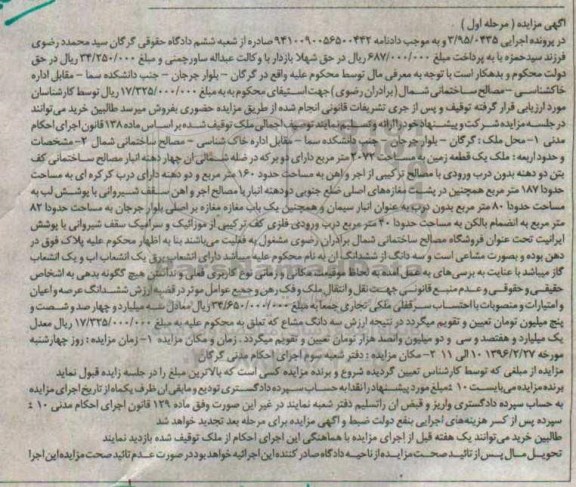 آگهی مزایده ( مرحله اول )
در پرونده اجرایی ۳/۹۵/۰۴۳۵ و به موجب دادنامه ۹۴۱۰۰۹۰۰۵۶۵۰۰۴۴۲ صادره از شعبه ششم دادگاه حقوقی گرگان سید محمدد رضوی
فرزند سیدحمزه با به پرداخت مبلغ ۶۸۷/۰۰۰/۰۰۰ ریال در حق شهلا بازدار با وکالت عبداله ساورجمنی و مبلغ ۳۴/۲۵۰/۰۰۰ ریال در حق
دولت محکوم و بدهکار است با توجه به معرفی مال توسط محکوم علیه واقع در گرگان - بلوار جرجان - جنب دانشکده سما - مقابل اداره
خاکشناسی - مصالح ساختمانی شمال (برادران رضوی) جهت استیفای محکوم به به مبلغ ۱۷/۳۲۵/۰۰۰/۰۰۰ ریال توسط کارشناسان
مورد ارزیابی قرار گرفته توقیف و پس از جری تشریفات قانونی انجام شده از طریق مزایده حضوری بفروش میرسد طالبین خرید می‌توانند
در جلسه مزایده شرکت و پیشنهاد خود را ارائه و تسلیم نمایند توصیف اجمالی ملک توقیف شده بر اساس ماده ۱۳۸ قانون اجرای احکام
مدنی ۱- محل ملک : گرگان - بلوار جرجان - جنب دانشکده سما - مقابل اداره خاک شناسی - مصالح ساختمانی شمال ۲- مشخصات
و حدود اربعه : ملک یک قطعه زمین به مساحت ۲۰۷۲ متر مربع دارای دو بر که در ضلع شمالی ان چهار دهنه انبار مصالح ساختمانی کف
بتن دو دهنه بدون درب ورودی با مصالح ترکیبی از اجر و اهن به مساحت حدود ۱۶۰ متر مربع و دو دهنه دارای درب کرکره ای به مساحت
حدودا ۱۸۷ متر مربع همچنین در پشت مغازه‌های اصلی ضلع جنوبی دودهنه انبار با مصالح اجر و اهن سقف شیروانی با پوشش لب به
مساحت حدودا ۸۰ متر مربع بدون درب به عنوان انبار سیمان و همچنین یک باب مغازه مغازه بر اصلی بلوار جرجان به مساحت حدودا ۸۲
متر مربع به انضمام بالکن به مساحت حدودا ۴۰ متر مربع درب ورودی فلزی کف ترکیبی از موزائیک و سرامیک سقف شیروانی با پوشش
ایرانیت تحت عنوان فروشگاه مصالح ساختمانی شمال برادران رضوی مشغول به فعلیت می‌باشند بنا به اظهار محکوم علیه پلاک فوق در
دهن بوده و بصورت مشاعی است و سه دانگ از ششدانگ ان به نام محکوم علیه میباشد دارای انشعاب برق یک انشعاب اب و یک انشعاب
گاز میباشد با عنایت به برسی‌های به عمل امده به لحاظ موقعیت مکانی و زمانی نوع کاربری فعلی و نداشتن هیچ گگونه بدهی به اشخاص
حقیقی و حقوقی و عدم منبع قانونی جهت نقل و انتقال ملک و فک رهن و جمیع عوامل موثر در قضیه ارزش ششدانگ عرصه و اعیان
و امتیازات و منصوبات با احتساب سر قفلی ملکی تجاری جمعا به مبلغ ۳۴/۶۵۰/۰۰۰/۰۰۰ ریال معادل سه میلیارد و چهار صد و شصت و
پنج میلیون تومان تعیین و تقویم میگردد در نتیجه ارزش سه دانگ مشاع که تعلق به محکوم علیه به مبلغ ۱۷/۳۲۵/۰۰۰/۰۰۰ ریال معدل
یک میلیارد و هفتصد و سی و دو میلیون وانصد هزار تومان تعیین و تقویم میگردد . زمان و مکان مزایده ۱- زمان مزایده : روز چهارشنبه
مورخه ۱۳۹۶/۲/۲۷ ۱۰ الی ۱۱ ۲- مکان مزایده : دفتر شعبه سوم اجرای احکام مدنی گرگان
مزایده از مبلغی که توسط کارشناس تعیین گردیده شروع و برنده مزایده کسی است که بالاترین مبلغ را در جلسه زایده قبول نماید
برنده مزایده می‌بایست ۱۰ ٪ مبلغ مورد پیشنهاد را نقدا به حساب سپرده دادگستری تودیع و مابقی ان ظرف یکماه از تاریخ اجرای مزایده
به حساب سپرده دادگستری واریز و قبض ان راتسلیم دفتر شعبه نمایند در غیر این صورت وفق ماده ۱۲۹ قانون اجرای احکام مدنی ۱۰ ٪
سپرده پس از کسر هزینه‌های اجرایی بنفع دولت ضبط و اگهی مزایده برای مرحله بعد تجدید خواهد شد
طالبین خرید می‌توانند یک هفته قبل از اجرای مزایده با هماهنگی این اجرای احکام از ملک توقیف شده بازدید نمایند
تحویل مال پس از تائید صحت مزایده از ناحیه دادگاه صادر کننده این اجرائیه خواهد بود در صورت عدم تائید صحت مزایده این اجرا